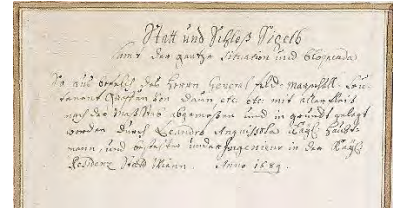 Statt und Schloß Sigeth
sambt der gantze Situation und Bloquada
So aus befelch des Herrn General Feld- Marschall- Leu-
tenant Grafen von Daun etc etc mit allem fleis
nach der Masstab abgemessen und in grundt gelegt
worden durch Leandro Anguissola Kayl. Haubt-
mann, und Ingenieur in der Kayl.
Residenz Statt Wienn. Anno 1689.